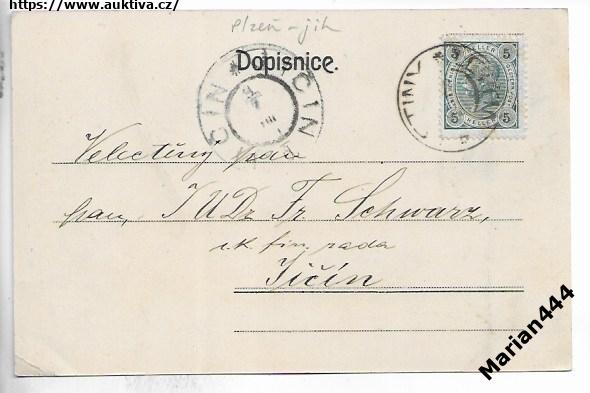 https://www.auktiva.cz/
Plzeň - jih
Dopisnice.
JIČIN
CIN
5 HELLER 5
5 HELLER 5
TINY
Velectěný pan
pan, JUDr Fr. Schwarz,
c. k. fin. rada
Jičín
Marian444